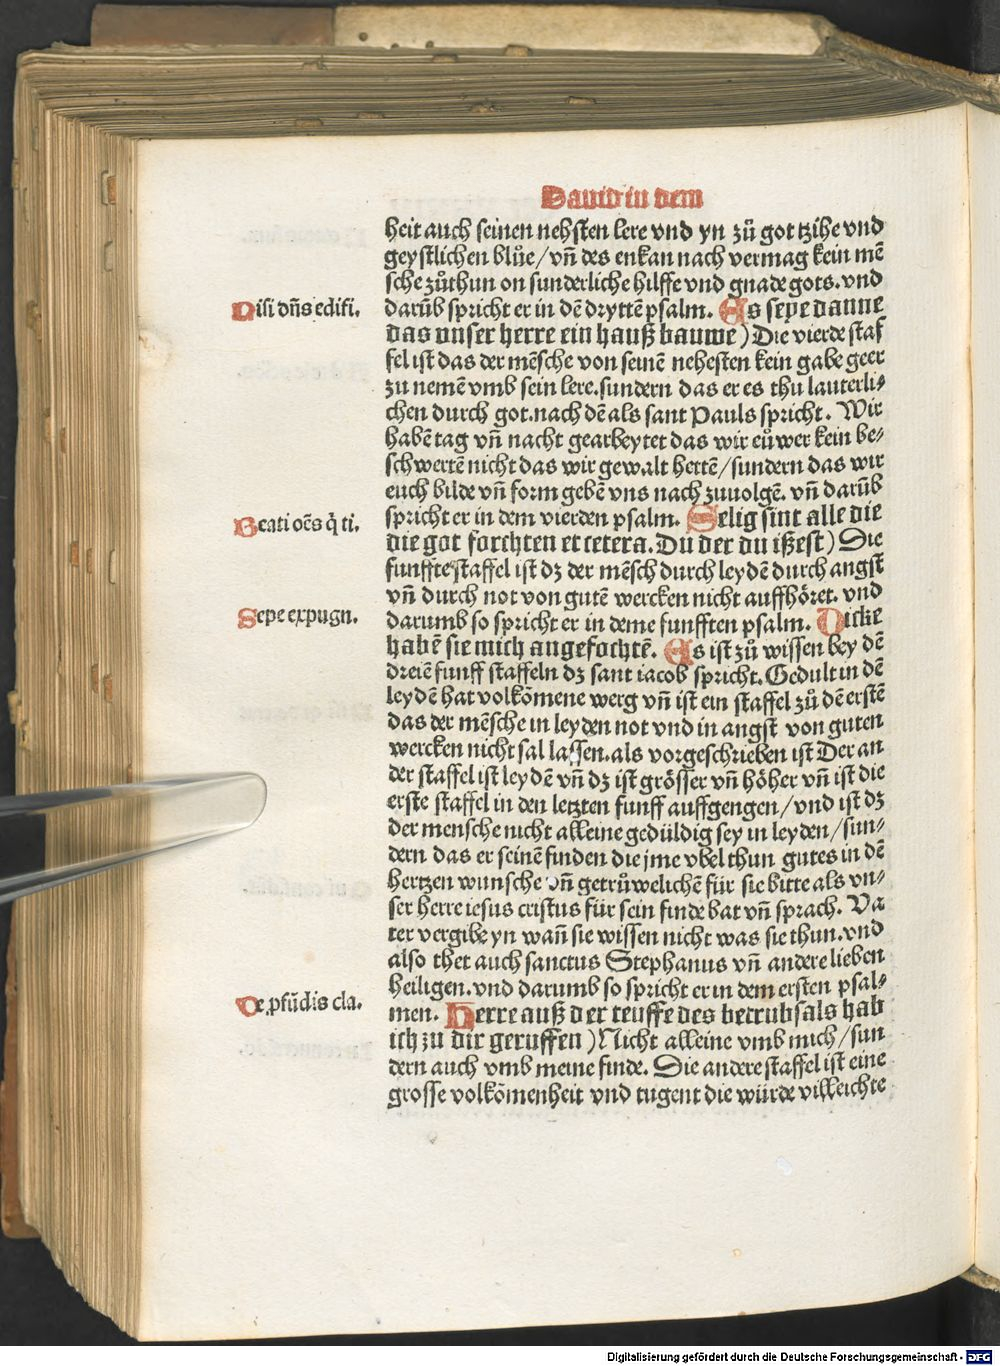 Dauid in dem
heit auch seinen nehsten lere vnd yn zů got tzihe vnd
geystlichen blůe/vñ des enkan nach vermag kein mē
sche zůthun on sunderliche hilffe vnd gnade gots.vnd
Nisi dñs edifi.
darūb spricht er in dē drytte͂ psalm. Es seye danne
das vnser herre ein hauß bauwe) Die vierde staf
fel ist das der mēsche von seinē nehesten kein gabe geer
zu nemē vmb sein lere.sundern das er es thu lauterli⸗
chen durch got.nach dē als sant Pauls spricht. Wir
habē tag vñ nacht gearbeytet das wir eůwer kein be⸗
schwertē nicht das wir gewalt hettē/sundern das wir
euch bilde vñ form gebē vns nach zuuolgē. vñ darūb
Beati oēs q̇ ti.
spricht er in dem vierden psalm. Selig sint alle die
die got forchten et cetera. Du der du ißest) Die
funffte staffel ist dz der mēsch durch leydē durch angst
vñ durch not von gutē wercken nicht auffhöret. vnd
Sepe expugn.
darumb so spricht er in deme funfften psalm. Dicke
habē sie mich angefochtē. Es ist zů wissen bey dē
dreiē funff staffeln dz sant iacob spricht. Gedult in dē
leydē hat volkōmene werg vñ ist ein staffel zů dē erstē
das der mēsche in leyden not vnd in angst von guten
wercken nicht sal lassen.als vorgeschrieben ist Der an
der staffel ist leydē vñ dz ist grösser vñ höher vñ ist die
erste staffel in den letzten funff auffgengen/vnd ist dz
der mensche nicht alleine gedüldig sey in leyden/sun⸗
dern das er seinē finden die jme vbel thun gutes in dē
hertzen wunsche vñ getrůwelichē für sie bitte als vn⸗
ser herre iesus cristus für sein finde bat vñ sprach. Va
ter vergibe yn wañ sie wissen nicht was sie thun.vnd
also thet auch sanctus Stephanus vñ andere lieben
heiligen.vnd darumb so spricht er in dem ersten psal⸗
De ꝓfūdis cla.
men. Herre auß der teuffe des betrubsals hab
ich zu dir geruffen) Nicht alleine vmb mich/sun
dern auch vmb meine finde. Die andere staffel ist eine
grosse volkōmenheit vnd tugent die würde villeichte
Digitalisierung gefördert durch die Deutsche Forschungsgemeinschaft - DFG